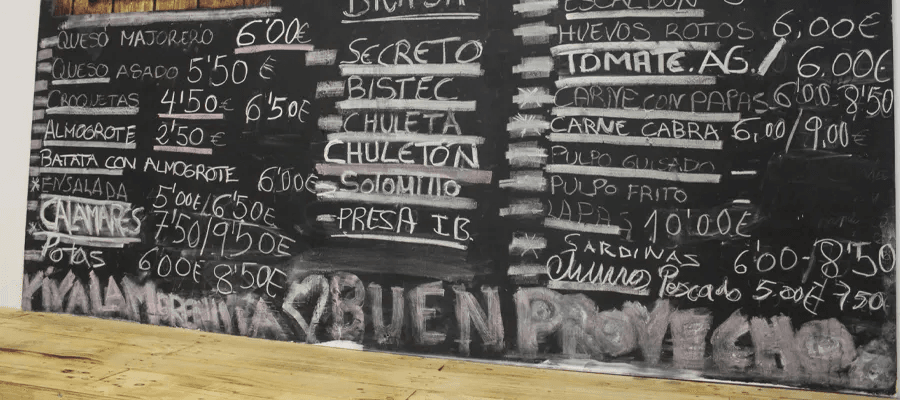 QUESO MAJORERO 6'00€
QUESO ASADO 5'50 €
CROQUETAS 4'50€ 6'50€
ALMOGROTE 2'50€
BATATA CON ALMOGROTE 6'00€
ENSALADA 5'00€/6'50€
CALAMARES 7'50/9'50€
Potas 6'00€ 8'50€
BRASA
SECRETO
BISTEC
CHULETA
CHULETÓN
Solomillo
PRESA IB.
ESCALDÓN
HUEVOS ROTOS 6,00€
TOMATE.AG./ 6.00€
CARNE CON PAPAS 6'00 8'50
CARNE CABRA 6,00/9,00€
PULPO GUISADO
PULPO FRITO
LAPAS 10'00€
SARDINAS 6'00-/8'50
Pescado 5.00€/7'50
BUEN PROVECHO